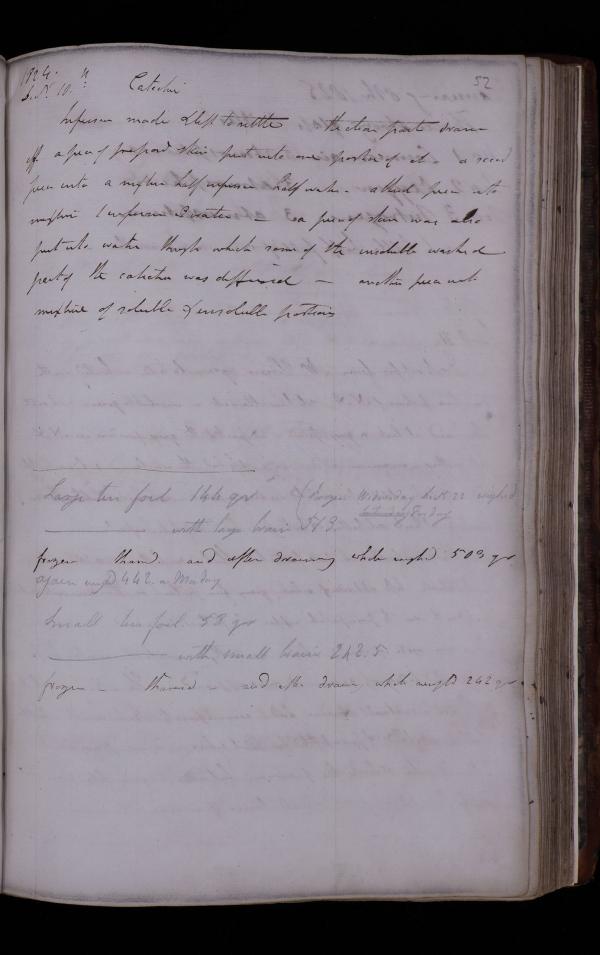 1824.
52
Decr. 10.th Catechu
Infusion made & left to settle the clear parts drawn
off a piece of prepared skin put into one portion of it a second
piece into a mixture half infusion half water - a third piece into
mixture 1 infusion 3 water — a piece of skin was also
put into water through which some of the insoluble washed
part of the catechu was diffused — another piece into
mixture of soluble & insoluble portions
Large tin foil 144 gr (frozen Wednesday Decr 22 weighed
with large brain 513.
frozen thawed. and after draining while weighd 503 gr
again weighd 442. on Monday
Small tin foil. 58 gr
with small brain 242.5
frozen - thawed - and after draining while weighd 242 gr